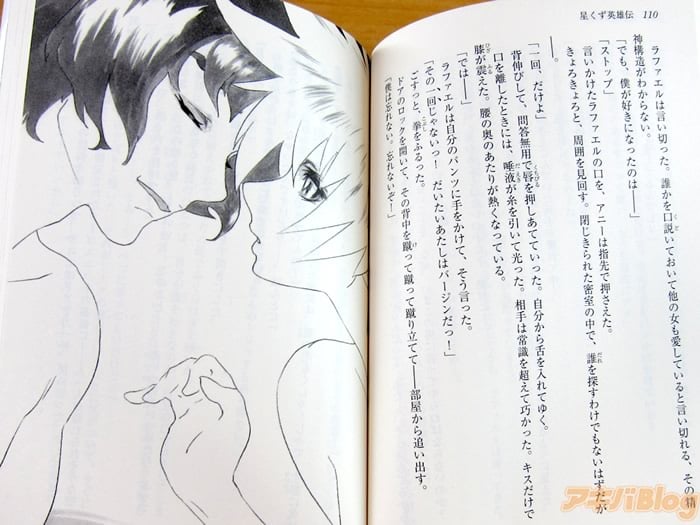 星くず英雄伝 110
ラファエルは言い切った。誰かを口説いておいて他の女も愛していると言い切れる、その精
神構造がわからない。
「でも、僕が好きになったのは——」
「ストップ」
言いかけたラファエルの口を、アニーは指先で押さえた。
きょろきょろと、周囲を見回す。閉じきられた密室の中で、誰を探すわけでもないはずだが
——。
「一回、だけよ」
背伸びして、問答無用で唇を押しあてていった。自分から舌を入れてゆく。
口を離したときには、唾液が糸を引いて光った。相手は常識を超えて巧かった。キスだけで
膝が震えた。腰の奥のあたりが熱くなっている。
「では——」
ラファエルは自分のパンツに手をかけて、そう言った。
「その一回じゃないっ! だいたいあたしはバージンだっ!」
ごすっと、拳をふるった。
ドアのロックを開いて、その背中を蹴って蹴り立てて——部屋から追い出す。
「僕は忘れない。忘れないぞ!」
アキバBlog